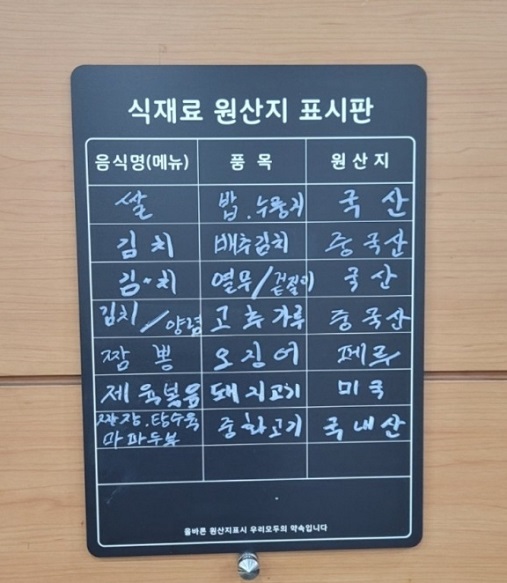 식재료 원산지 표시판
음식명(메뉴) 품 목 원 산 지
쌀 밥.누룽지 국 산
김 치 배추김치 중국산
김치 열무/겉절이 국 산
김치/양념 고추가루 중국산
짬 뽕 오징어 페루
제육볶음 돼지고기 미국
짜장.탕수육
마파두부 중화고기 국내산
올바른 원산지표시 우리모두의 약속입니다